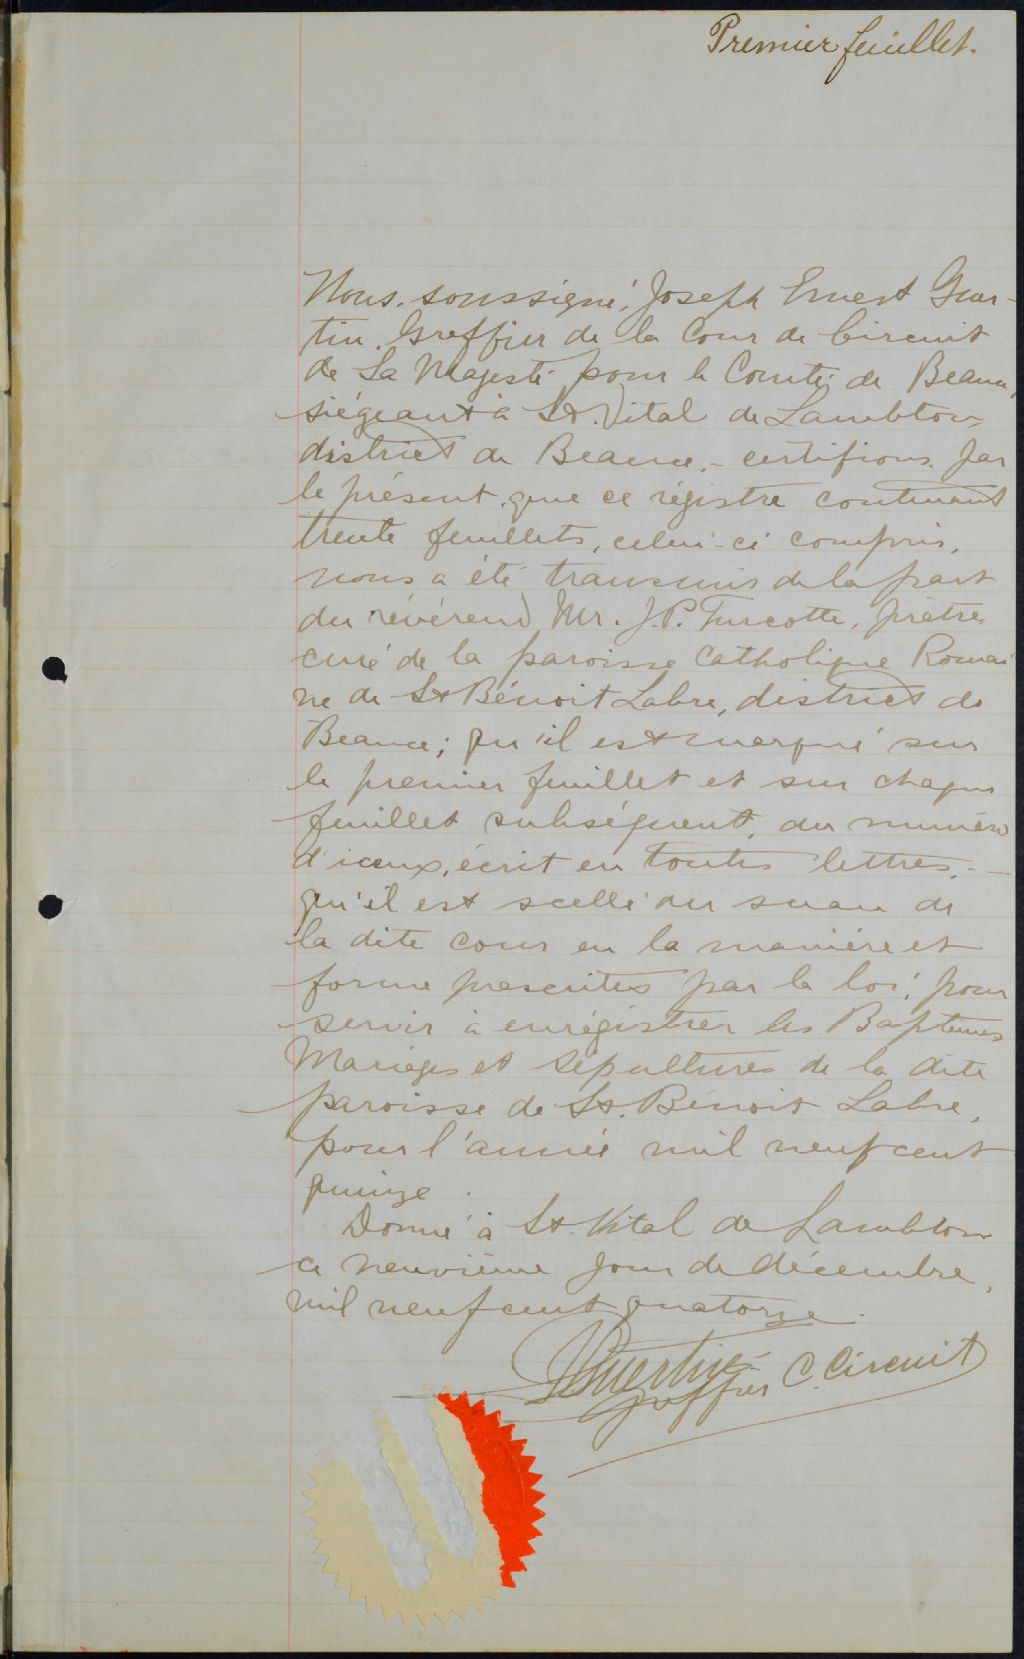 Premier feuillet.
Nous, soussigné, Joseph Ernest Guer-
tin, Greffier de la Cour de Circuit
de Sa Majesté pour le Comté de Beauce,
siégeant à St. Vital de Lambton
district de Beauce, - certifions par
le présent, que ce régistre contenant
trente feuillets, celui-ci compris,
nous a été transmis de la part
du révérend Mr. J.P. Turcotte, prêtre
curé de la paroisse Catholique Romai
ne de St Bénoit Labre, district de
Beauce; qu'il est marqué sur
le premier feuillet et sur chaque
feuillet subséquent, du numéro
d'iceux, écrit en toutes lettres, -
qu'il est scellé du sceau de
la dite cour en la manière et
forme prescrites par la loi, pour
servir à enrégistrer les Baptêmes
Mariages et Sépultures de la dite
paroisse de St. Bénoit Labre,
pour l'année mil neuf cent
quinze.
Donné à St. Vital de Lambton
ce neuvième jour de décembre,
mil neuf cent quatorze.
JEGuertin
greffier C. Circuit